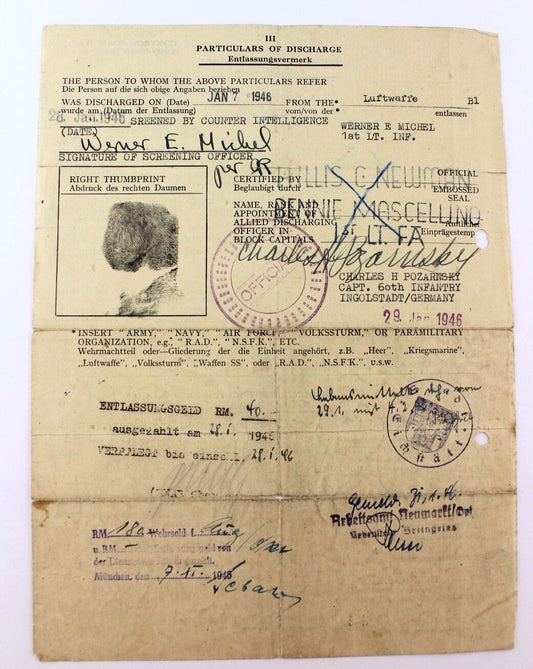 III
PARTICULARS OF DISCHARGE
Entlassungsvermerk
THE PERSON TO WHOM THE ABOVE PARTICULARS REFER
Die Person auf die sich obige Angaben beziehen
WAS DISCHARGED ON (Date) JAN 7 1946 FROM THE* Luftwaffe Bl
wurde am (Datum der Entlassung) vom/von der* entlassen
28. Jan. 1946 SREENED BY COUNTER INTELLIGENCE
(DATE)
WERNER E MICHEL
1st LT. INF.
Werner E. Michel
SIGNATURE OF SCREENING OFFICER
per
RIGHT THUMBPRINT
Abdruck des rechten Daumen
CERTIFIED BY
Beglaubigt durch
C NEWMAN
OFFICIAL
EMBOSSED
SEAL
Amtlicher
Einprägestemp
NAME, RANK AND
APPOINTMENT OF
ALLIED DISCHARGING
OFFICER IN
BLOCK CAPITALS
MASCELLINO
1ST LT. FA
Charles H Pozarnsky
OFFICIAL
CHARLES H POZARNSKY
CAPT. 60th INFANTRY
INGOLSTADT/GERMANY
29. Jan. 1946
* INSERT "ARMY," "NAVY," "AIR FORCE," "VOLKSSTURM," OR PARAMILITARY
ORGANIZATION, e.g., "R.A.D.", "N.S.F.K.", ETC.
Wehrmachtteil oder—Gliederung der die Einheit angehört, z.B. „Heer", „Kriegsmarine",
„Luftwaffe", „Volkssturm", „Waffen SS", oder „R.A.D.", „N.S.F.K.", u.s.w.
ENTLASSUNGSGELD RM. 40.-
ausgezahlt am 28.I. 1946
VERPFLEGT bis einschl. 28.I.46
29.1.
Eichstätt
Arbeitsamt Neumarkt/Opf
Nebenstelle Beilngries
RM 180 Wehrsold f. Aug
u. RM –
München, den 7.II. 1946